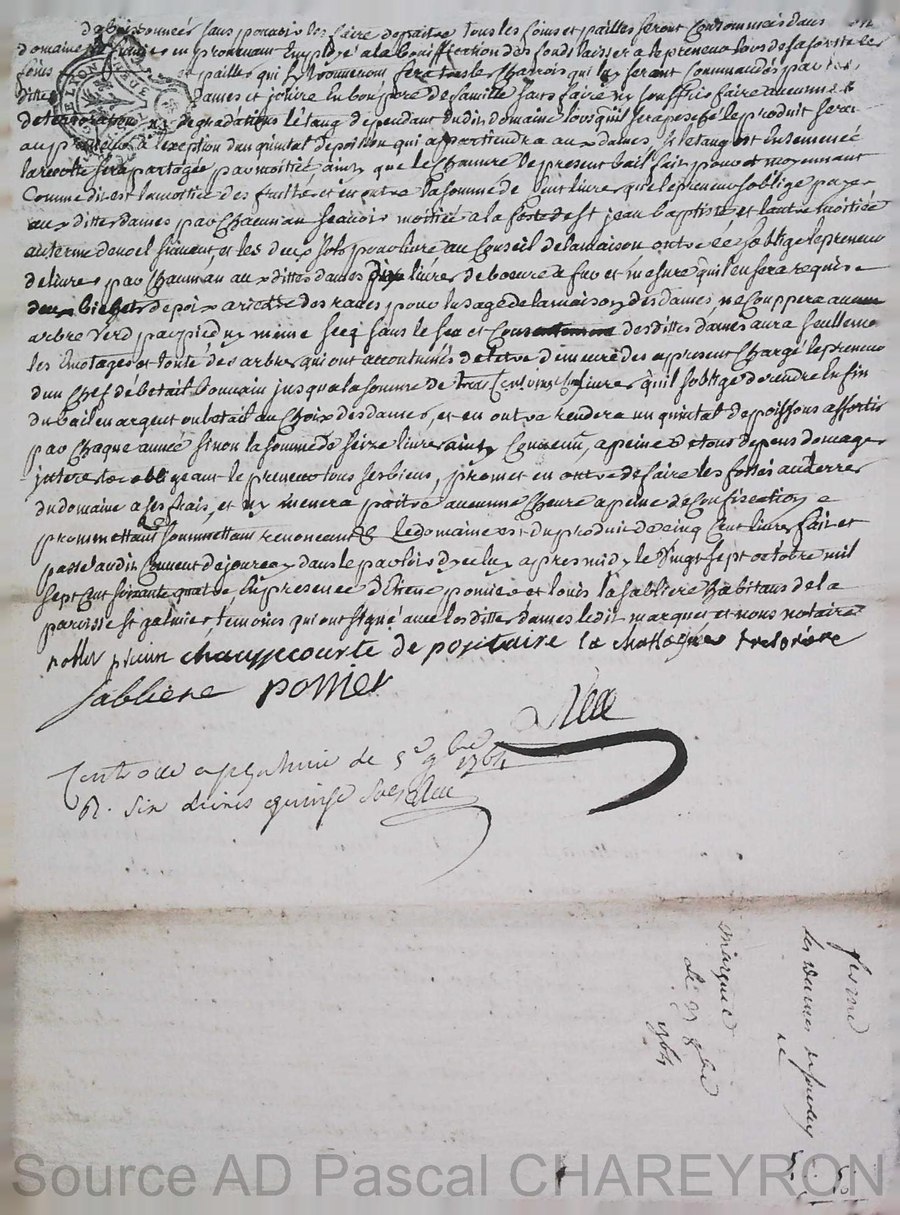 sans pouvoir les faire depaitre tous les foins et pailles seront Consommés dans
domaine et en provenant Employé a la bonification des fonds laissera le preneur lors de sa sortie les
foins et pailles qui fera tous les Charrois qui luy seront Commandés par les
dittes Dames et jouira En bon pere de famille sans faire ny souffrir faire aucunnes
deterioration ny degradations l'étang dependant dudit domaine lors qu'il sera pesché le produit sera
au preneur a l'exception d'un quintal de poisson qui appartiendra aux dames, si l'etang est Ensemencé
la recolte sera partagée par moitié ainsy que le Chanvre le present bail fait pour et moyennant
Comme dit est la moitié des fruits et en outre la somme de Cent livres que le preneur s'oblige payer
aux dittes dames par Chacun an scavoir moitié a la feste de st jean baptiste et l'autre moitié
au terme de noel suivant, et les deux sols pour livre au Conseil de la maison outre ce s'oblige le preneur
de livrer par Chacun an aux dittes dames Dix livres de beurre a fur et mesure qu'il en sera requis
deux bichets de poix des raves pour l'usage de la maison desdames ne Couppera aucun
arbre verd par pied ny meme secq sans le sceu et Consentement desdittes dames aura seullement
les Emotages et tonte des arbres qui ont accoutumés de l'etre demeure des apresent Chargé le preneur
d'un Chef de bétail bouvain jusqua la somme de trois Cent vingt livres qu'il s'oblige de rendre En fin
du bail en argent ou bétail au Choix desdames, et en outre rendera un quintal de poissons assortis
par Chaque année sinon la somme de seize livres ainsy Convenu, a peine de tous depens domages
interets obligeant le preneur tous ses biens, promet en outre de faire les fossés au terres
du domaine a ses frais, et n'y menera paitre aucunne Chevre a peine de Confiscation
promettant soummettant renonceant &c le domaine est du produit de Cinq Cent livres fait et
passé audit Couvent de jourcey dans le parloir d'yceluy apres midy le Vingt sept octobre mil
sept Cent soixante quatre En presence d'Etiene ponier et loüis la sabliere habitans de la
paroisse st galmier, temoins qui ont signé avec lesdittes dames ledit marquet et nous notaire
chauffecourte de positaire la tresoriere
sabliere ponier
Controllé a st galmier le 5e 9bre 1764
six livres quinze sols
ferme
les dames de jourcey
a
marquet
du 27 8bre
1764